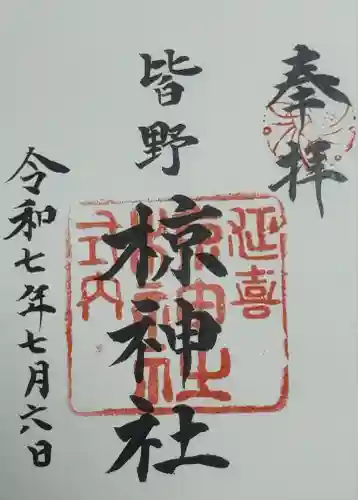 奉拝
皆野
椋神社
延喜
式内
椋神社
令和七年七月六日